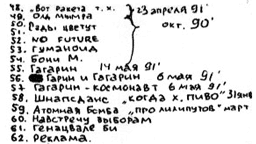 48. „Вот ракета т. х. } 23 апреля 91'
49. Олд мымра
50. Сады цветут окт. 90'
51.
52. NO FUTURE
53. Гуманоид
54. Бони М.
55. Гагарин 14 мая 91'
56. Гарин и Гагарин 6 мая 91'
57. Гагарин - космонавт 6 мая 91'
58. Шнапсданс „когда х. пиво" 31янв
59. Атомная Бомба „про лилипутов" март
60. Навстречу выборам
61. Генацвале би
62. Реклама.